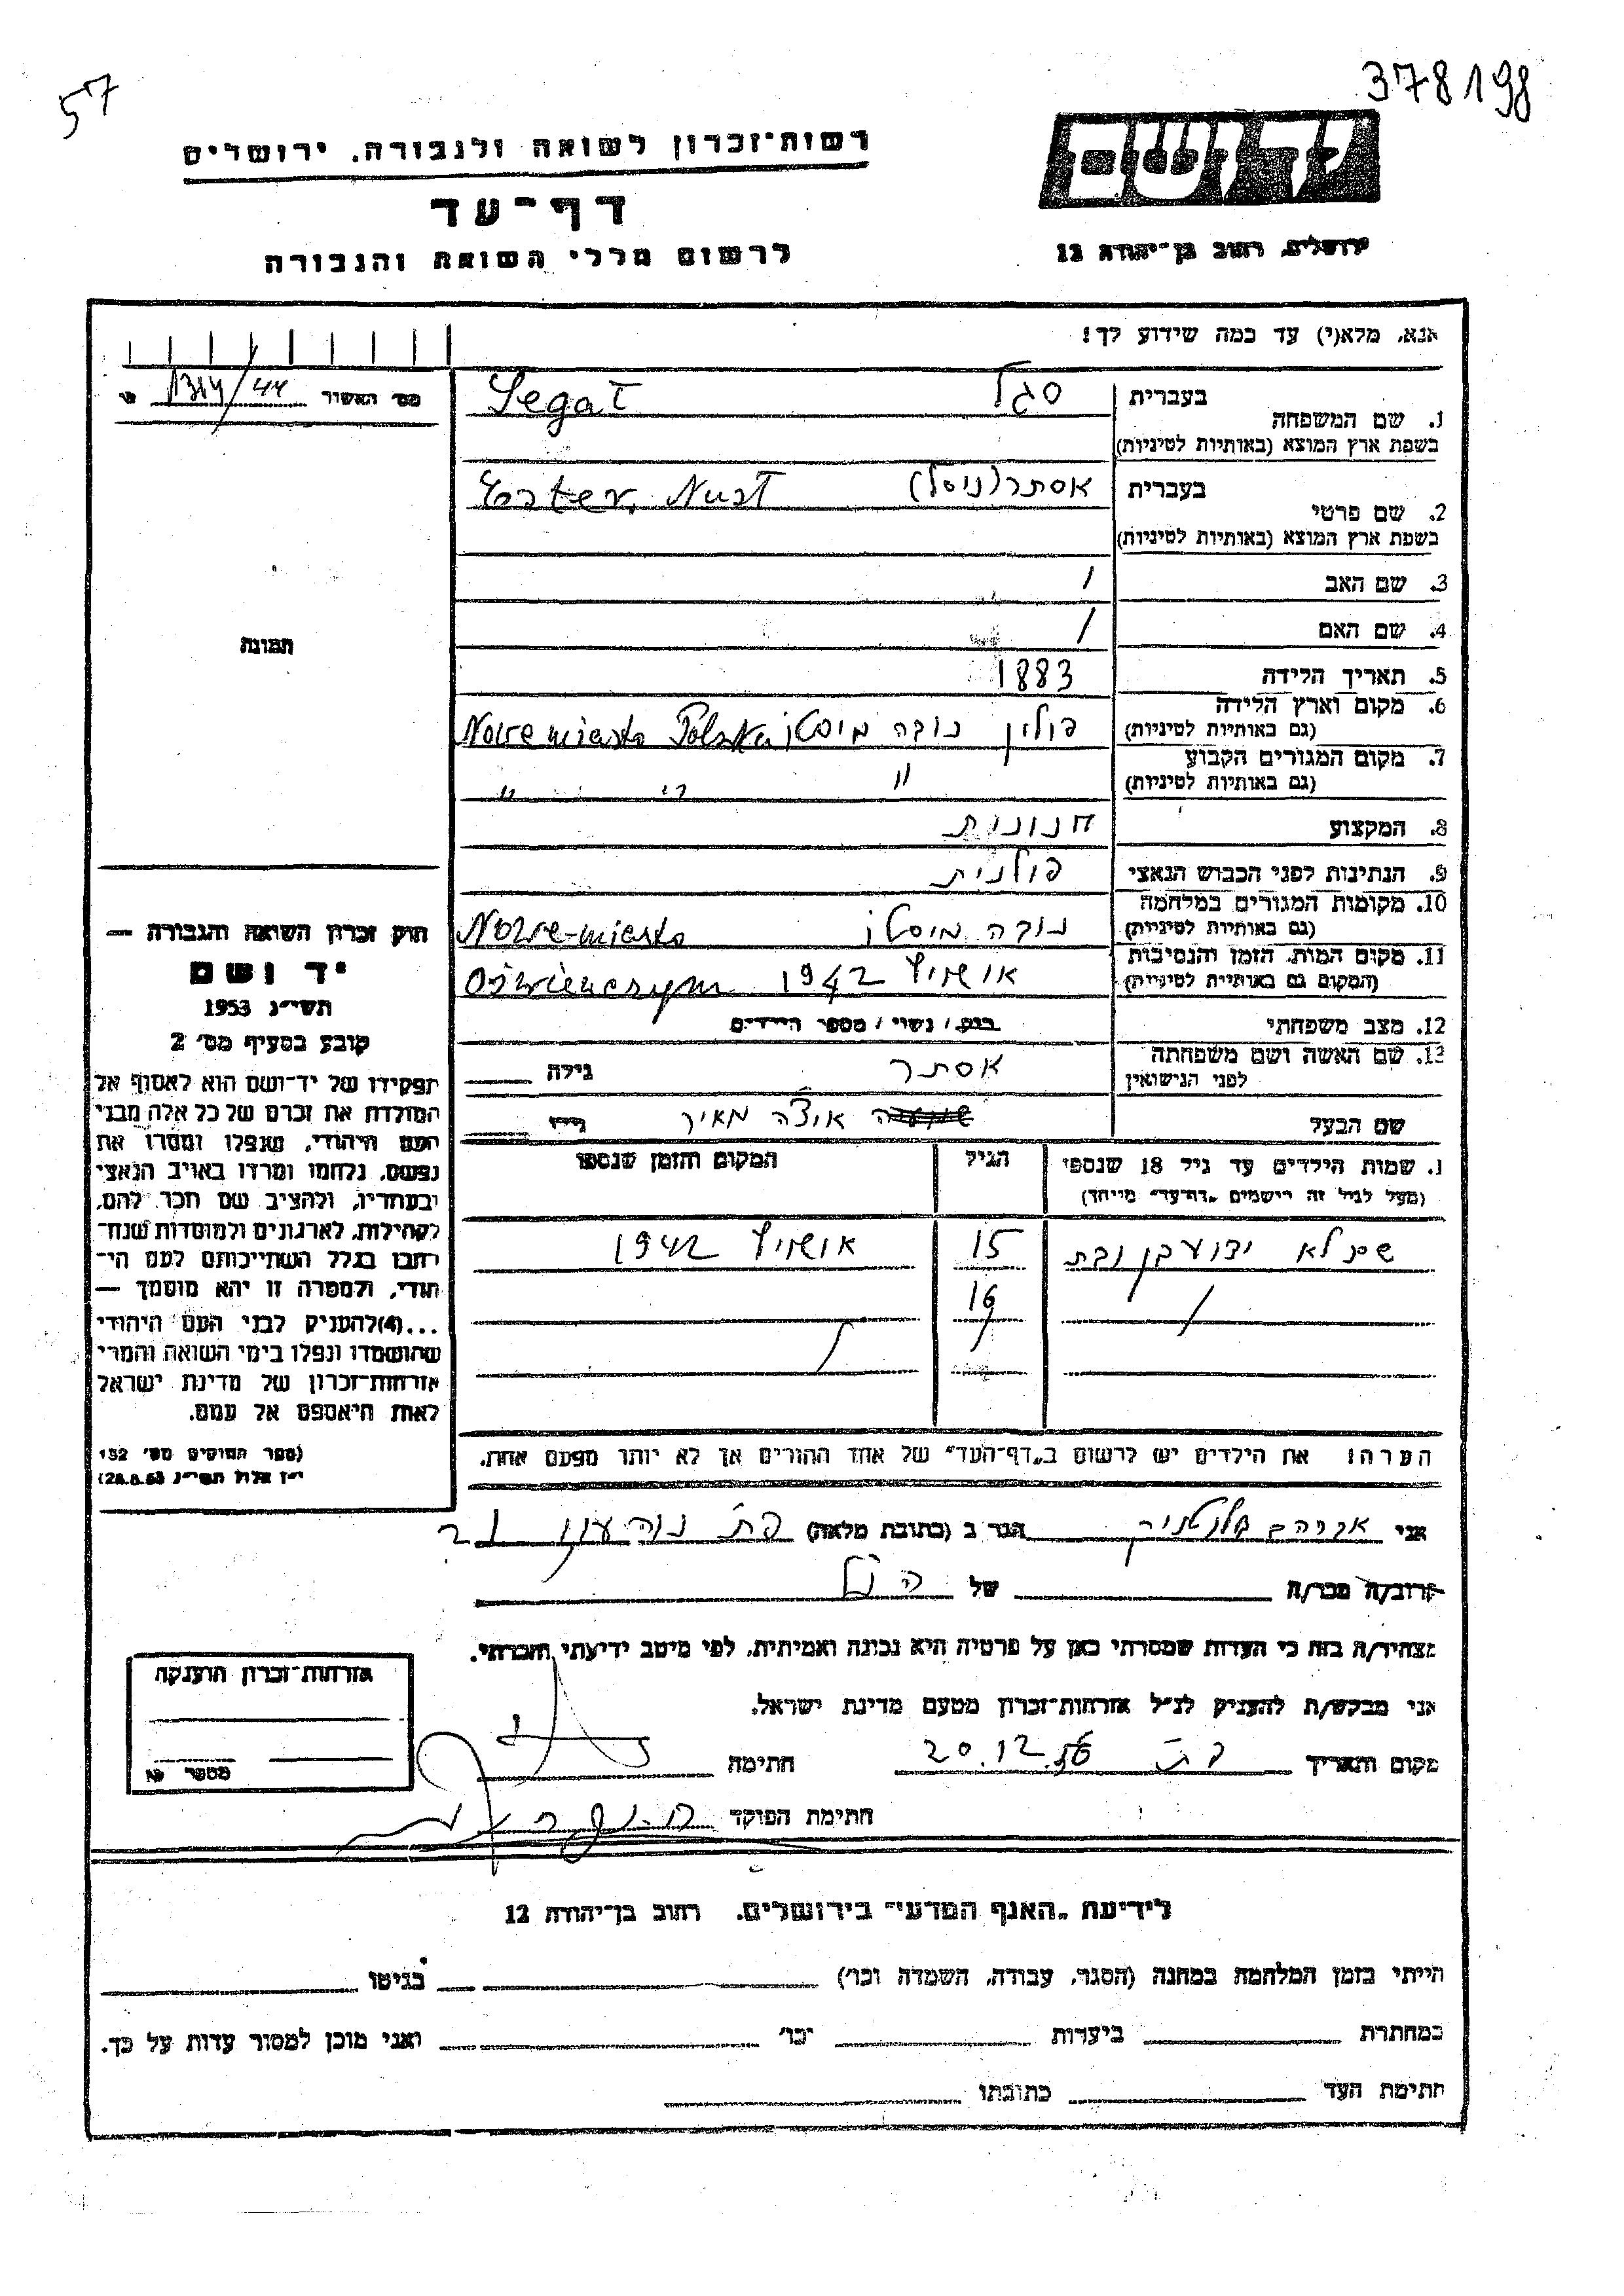 57
378198
יד ושם
רשות־זכרון לשואה ולגבורה, ירושלים
דף־עד
לרשום חללי השואה והגבורה
ירושלים, רחוב בן־יהודה 12
אנא, מלא(י) עד כמה שידוע לך!
מס׳ האשיר 1314/44
1. שם המשפחה
בעברית סגל Segał
בשפת ארץ המוצא (באותיות לטיניות)
2. שם פרטי
בעברית אסתר (ניסל) Ester, Nusł
בשפת ארץ המוצא (באותיות לטיניות)
3. שם האב /
4. שם האם /
5. תאריך הלידה 1883
6. מקום וארץ הלידה פולין נובה מיסטו Nowe miasto Polska
(גם באותיות לטיניות)
7. מקום המגורים הקבוע " " "
(גם באותיות לטיניות)
8. המקצוע חנונית
9. הנתינות לפני הכבוש הנאצי פולנית
10. מקומות המגורים במלחמה נובה מיסטו Nowe-miasto
(גם באותיות לטיניות)
11. מקום המות, הזמן והנסיבות אושויץ 1942 Oświenczym
(המקום גם באותיות לטיניות)
12. מצב משפחתי רווק / נשוי / מספר הילדים
13. שם האשה ושם משפחתה אסתר גילה
לפני הנישואין
שם הבעל איצ׳ה מאיר גילו
תמונה
1. שמות הילדים עד גיל 18 שנספו הגיל המקום והזמן שנספו
(מעל לגיל זה רישמים „דף־עד״ מייחד)
שם לא ידוע בן ובת 15 אושויץ 1942
/ 16 /
הערה! את הילדים יש לרשום ב„דף־העד״ של אחד ההורים אך לא יותר מפעם אחת.
חוק זכרון השואה והגבורה —
יד ושם
תשי״ג 1953
קובע בסעיף מס׳ 2
תפקידו של יד־ושם הוא לאסוף אל
המולדת את זכרם של כל אלה מבני
העם היהודי, שנפלו ומסרו את
נפשם, נלחמו ומרדו באויב הנאצי
ובעוזריו, ולהציב שם וזכר להם,
לקהילות, לארגונים ולמוסדות שנח־
רבו בגלל השתייכותם לעם הי־
הודי, ולמטרה זו יהא מוסמך —
...(4) להעניק לבני העם היהודי
שהושמדו ונפלו בימי השואה והמרי
אזרחות־זכרון של מדינת ישראל
לאות היאספם אל עמם.
(ספר החוקים מס׳ 132
י״ז אלול תשי״ג 28.8.53)
אני אברהם הגר ב (כתובת מלאה) פת נוה עוז 21
קרוב/ה מכר/ה של הנ״ל
מצהיר/ה בזה כי העדות שמסרתי כאן על פרטיה היא נכונה ואמיתית, לפי מיטב ידיעתי והכרתי.
אני מבקש/ת להעניק לנ״ל אזרחות־זכרון מטעם מדינת ישראל.
מקום ותאריך פ״ת 20.12.56 חתימה
חתימת הפוקד
אזרחות־זכרון הוענקה
מספר
לידיעת „האגף המדעי״ בירושלים, רחוב בן־יהודה 12
הייתי בזמן המלחמה במחנה (הסגר, עבודה, השמדה וכו׳) בגיטו
במחתרת ביערות וכו׳ ואני מוכן למסור עדות על כך.
חתימת העד כתובתו